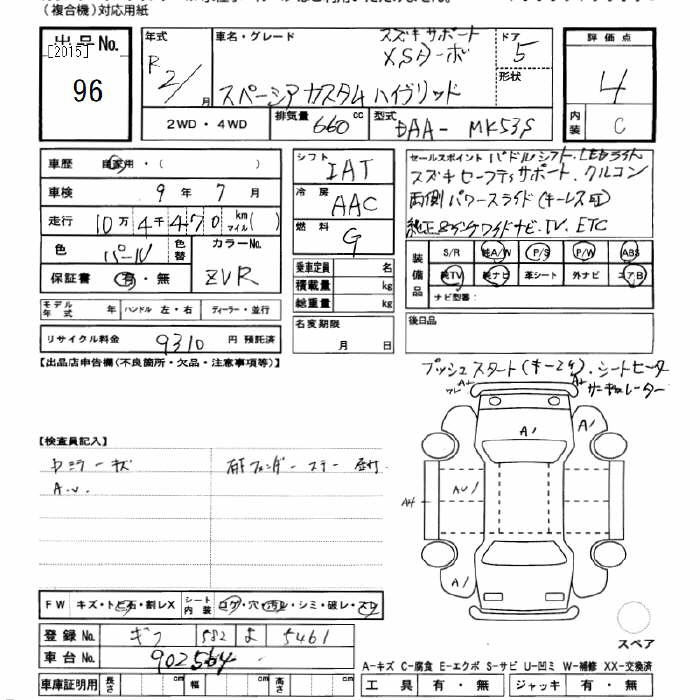 (複合機)対応用紙
出品No.
[2015]
96
年式
R 2/ 月
車名・グレード
スズキサポート
XSターボ
スペーシアカスタム ハイブリッド
ドア 5
形状
評価点
4
内装 C
2WD・4WD
排気量 660 cc
型式 DAA- MK53S
車歴 自家用・( )
車検 9 年 7 月
走行 10万 4千 4 7 0 km マイル( )
色 パール
色替
カラーNo. ZVR
保証書 有・無
モデル年式 年
ハンドル 左・右
ディーラー・並行
リサイクル料金 9310 円 預託済
シフト IAT
冷房 AAC
燃料 G
乗車定員 名
積載量 kg
総重量 kg
名変期限
月 日
セールスポイント パドルシフト.LEDライト.
スズキセーフティサポート.クルコン
両側パワースライド(キーレス可)
純正8インチワイドナビ.TV.ETC
装備品
S/R 純A/W P/S P/W ABS
純TV 純ナビ 革シート 外ナビ エアB
ナビ型番:
後日品
【出品店申告欄(不良箇所・欠品・注意事項等)】
プッシュスタート(キー2ケ).シートヒーター
サーキュレーター
【検査員記入】
A.U.
A1
A1
AU1
A4
A1
A1
FW キズ・トビ石・割レX
シート内装 コゲ・穴・汚レ・シミ・破レ・スレ
登録No. ギフ 582 よ 5461
車台No. 902564
車庫証明用 長さ cm 幅 cm 高さ cm
スペア
A-キズ C-腐食 E-エクボ S-サビ U-凹ミ W-補修 XX-交換済
工具 有・無 ジャッキ 有・無